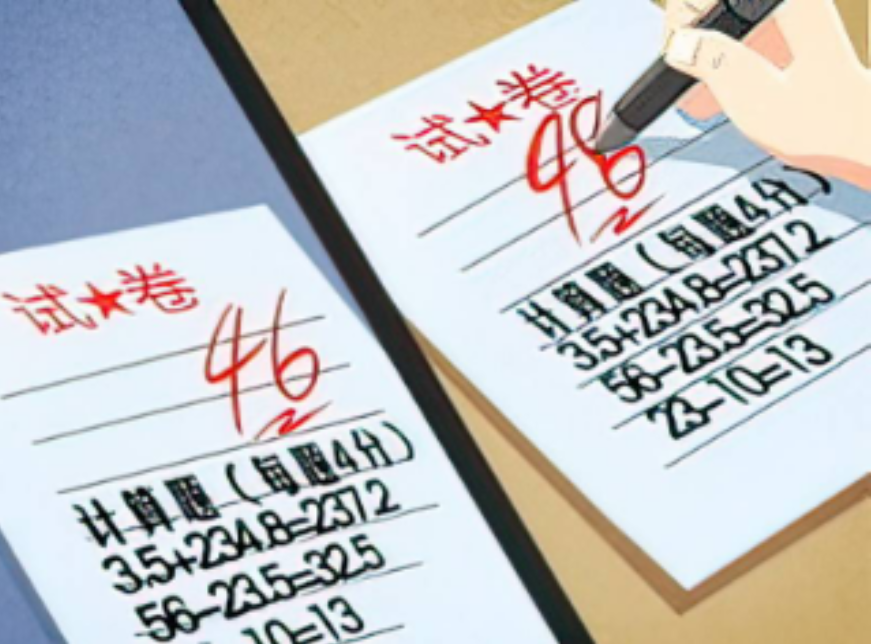 试★卷
46
计算题（每题4分）
3.5+234.8=237.2
56-23.5=32.5
-10=13
试★卷
98
计算题（每题4分）
3.5+234.8=237.2
56-23.5=32.5
23-10=13